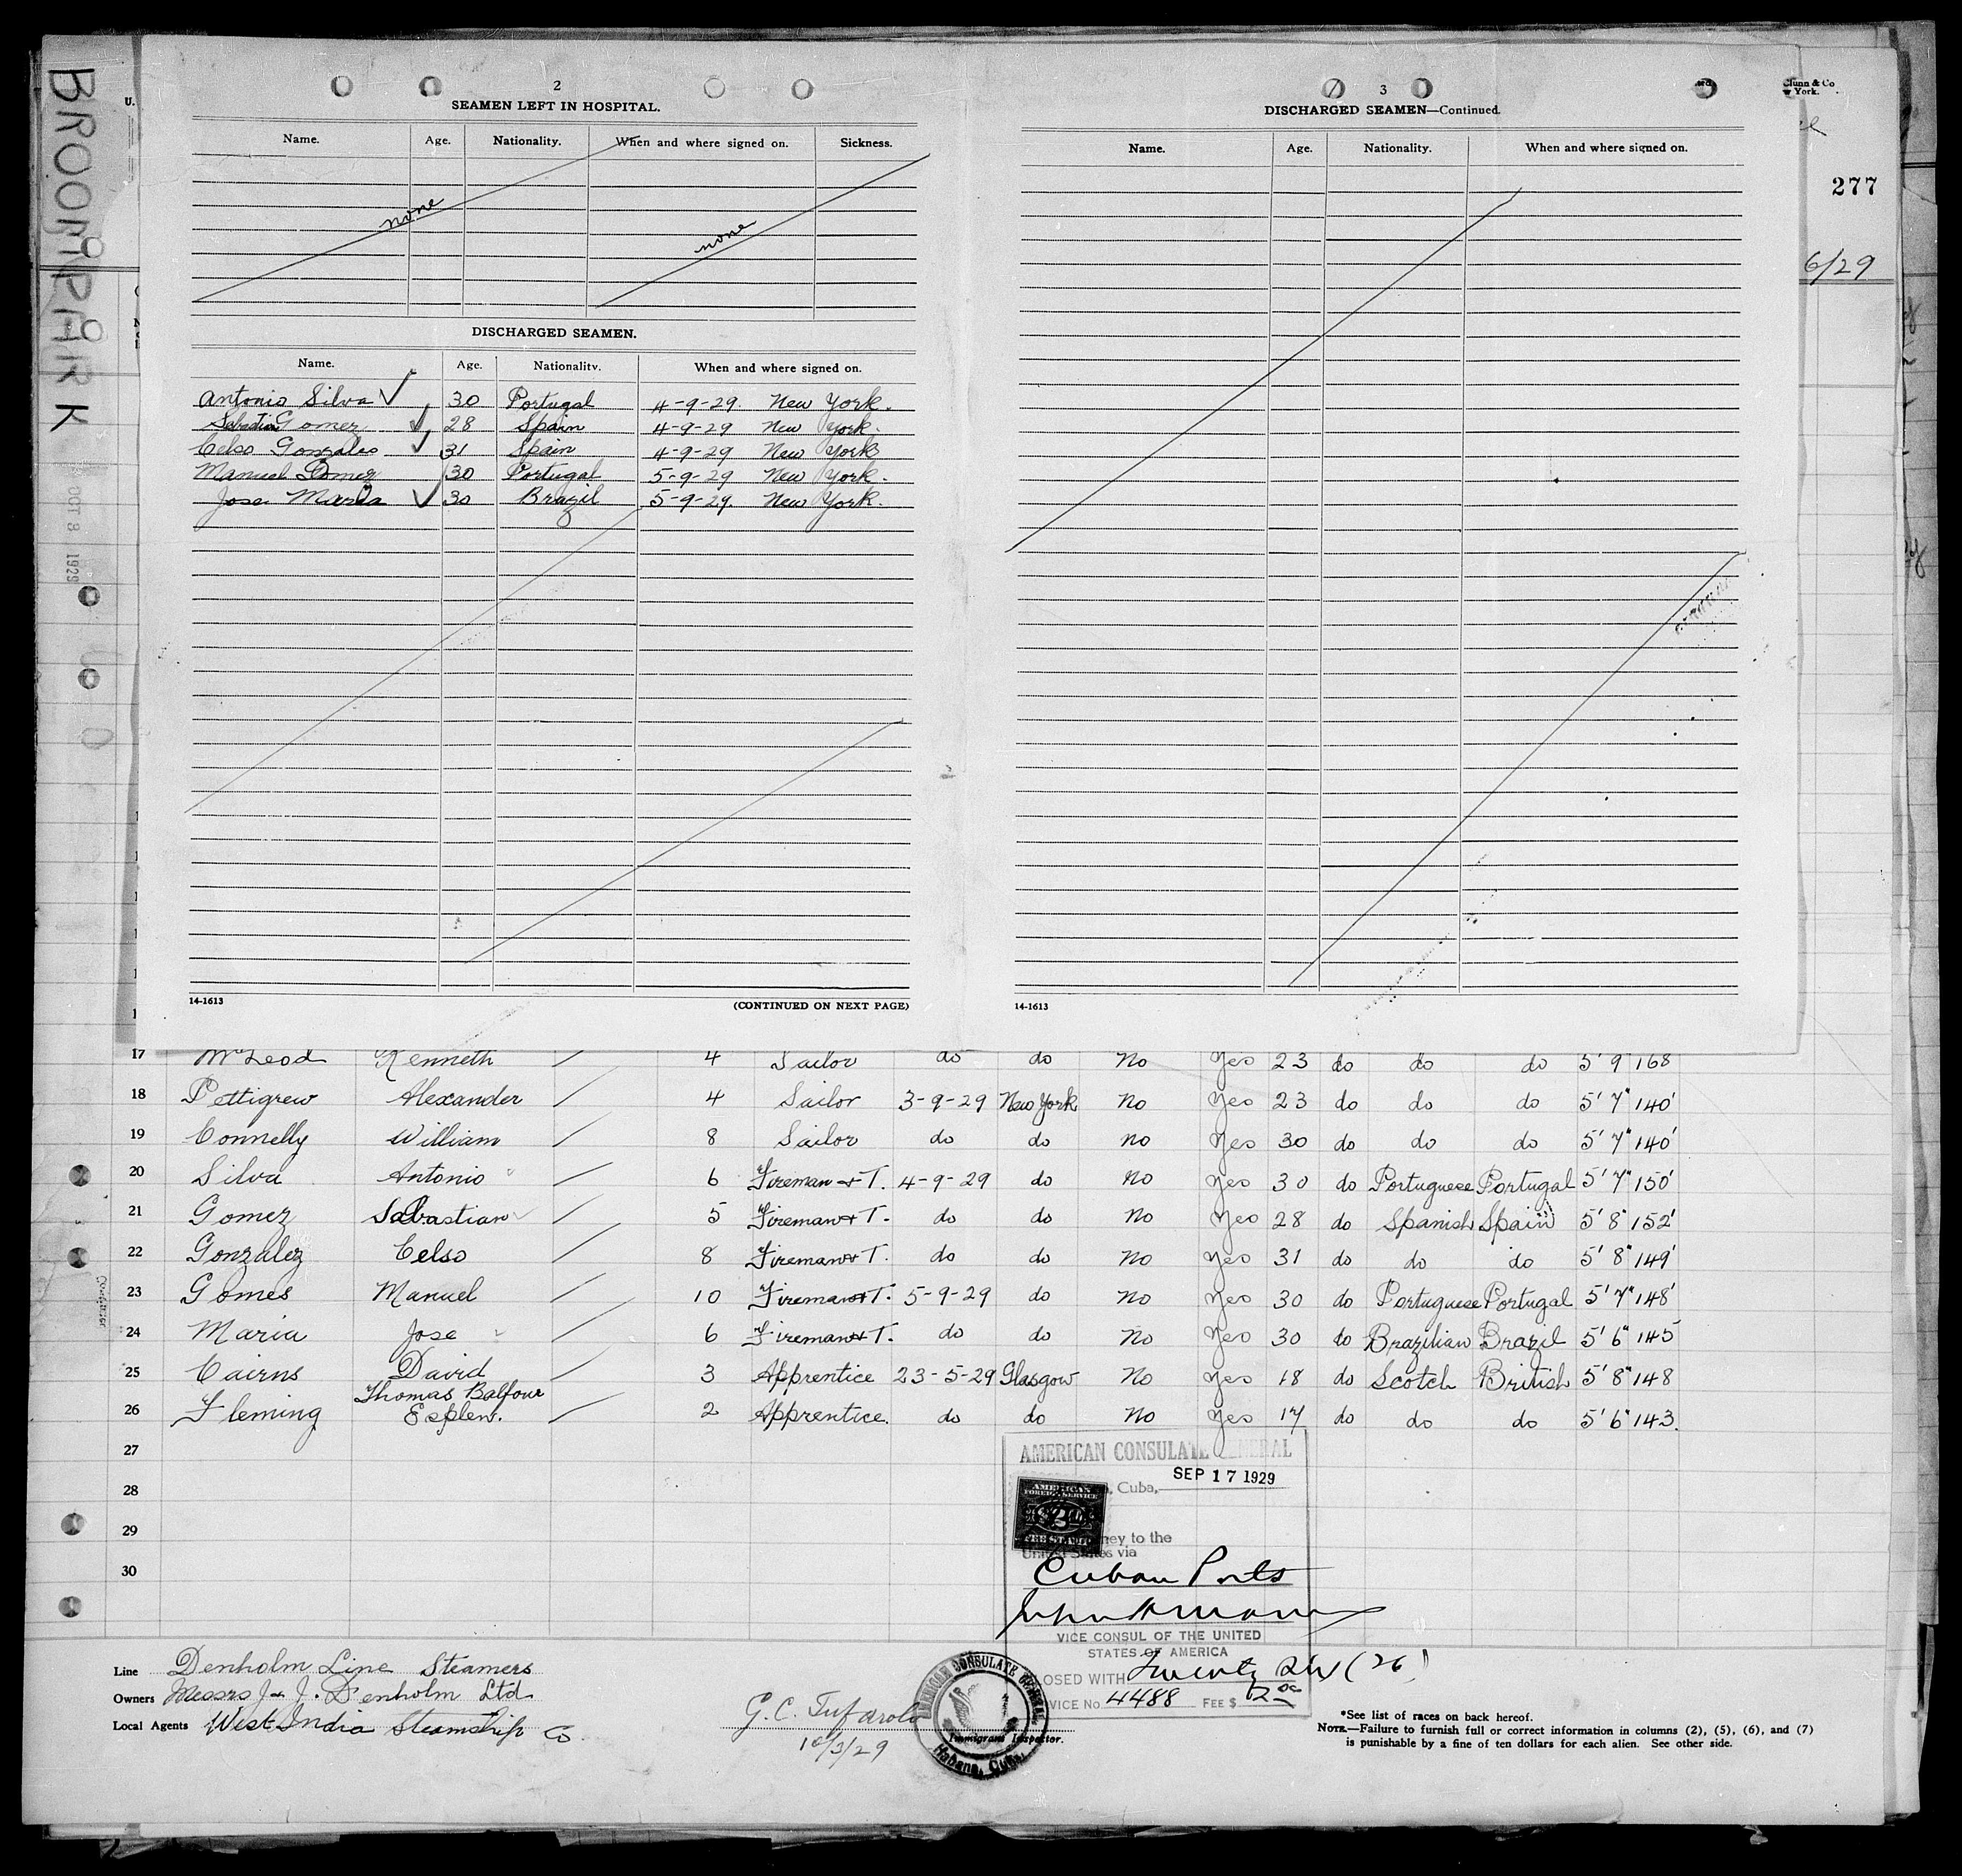 BROOMPARK
OCT 8 1929
U.
2
SEAMEN LEFT IN HOSPITAL.
Name. Age. Nationality. When and where signed on. Sickness.
none none
DISCHARGED SEAMEN.
Name. Age. Nationality. When and where signed on.
Antonio Silva ✓ 30 Portugal 4-9-29. New York.
Sabastian Gomez ✓ 28 Spain 4-9-29 New York.
Celso Gonzales ✓ 31 Spain 4-9-29 New York
Manuel Gomez 30 Portugal 5-9-29 New York.
Jose Maria ✓ 30 Brazil 5-9-29. New York.
14-1613 (CONTINUED ON NEXT PAGE)
3
DISCHARGED SEAMEN—Continued.
Name. Age. Nationality. When and where signed on.
14-1613
Gunn & Co
York.
277
6/29
17 McLeod Kenneth / 4 Sailor do do No Yes 23 do do do 5' 9" 168
18 Pettigrew Alexander / 4 Sailor 3-9-29 New York No Yes 23 do do do 5' 7" 140'
19 Connelly William / 8 Sailor do do No Yes 30 do do do 5' 7" 140'
20 Silva Antonio / 6 Fireman & T. 4-9-29 do No Yes 30 do Portuguese Portugal 5' 7" 150'
21 Gomez Sabastian / 5 Fireman & T. do do No Yes 28 do Spanish Spain 5' 8" 152'
22 Gonzalez Celso / 8 Fireman & T. do do No Yes 31 do do do 5' 8" 149'
23 Gomes Manuel / 10 Fireman & T. 5-9-29 do No Yes 30 do Portuguese Portugal 5' 7" 148'
24 Maria Jose / 6 Fireman & T. do do No Yes 30 do Brazilian Brazil 5' 6" 145
25 Cairns David / 3 Apprentice 23-5-29 Glasgow No Yes 18 do Scotch British 5' 8" 148
26 Fleming Thomas Balfour Esplen. / 2 Apprentice. do do No Yes 17 do do do 5' 6" 143.
27
28
29
30
AMERICAN CONSULATE GENERAL
, Cuba, SEP 17 1929
AMERICAN
FOREIGN SERVICE
FEE STAMP
ney to the
United States via
Cuban Ports
VICE CONSUL OF THE UNITED
STATES OF AMERICA
LOSED WITH Twenty Six (26)
VICE No. 4488 FEE $ 2.00
AMERICAN CONSULATE GENERAL
Habana, Cuba.
Line Denholm Line Steamers
Owners Messrs J & J. Denholm Ltd.
Local Agents West India Steamship Co.
G. C. Tufarolo
10/3/29
Immigrant Inspector.
*See list of races on back hereof.
NOTE.—Failure to furnish full or correct information in columns (2), (5), (6), and (7)
is punishable by a fine of ten dollars for each alien. See other side.